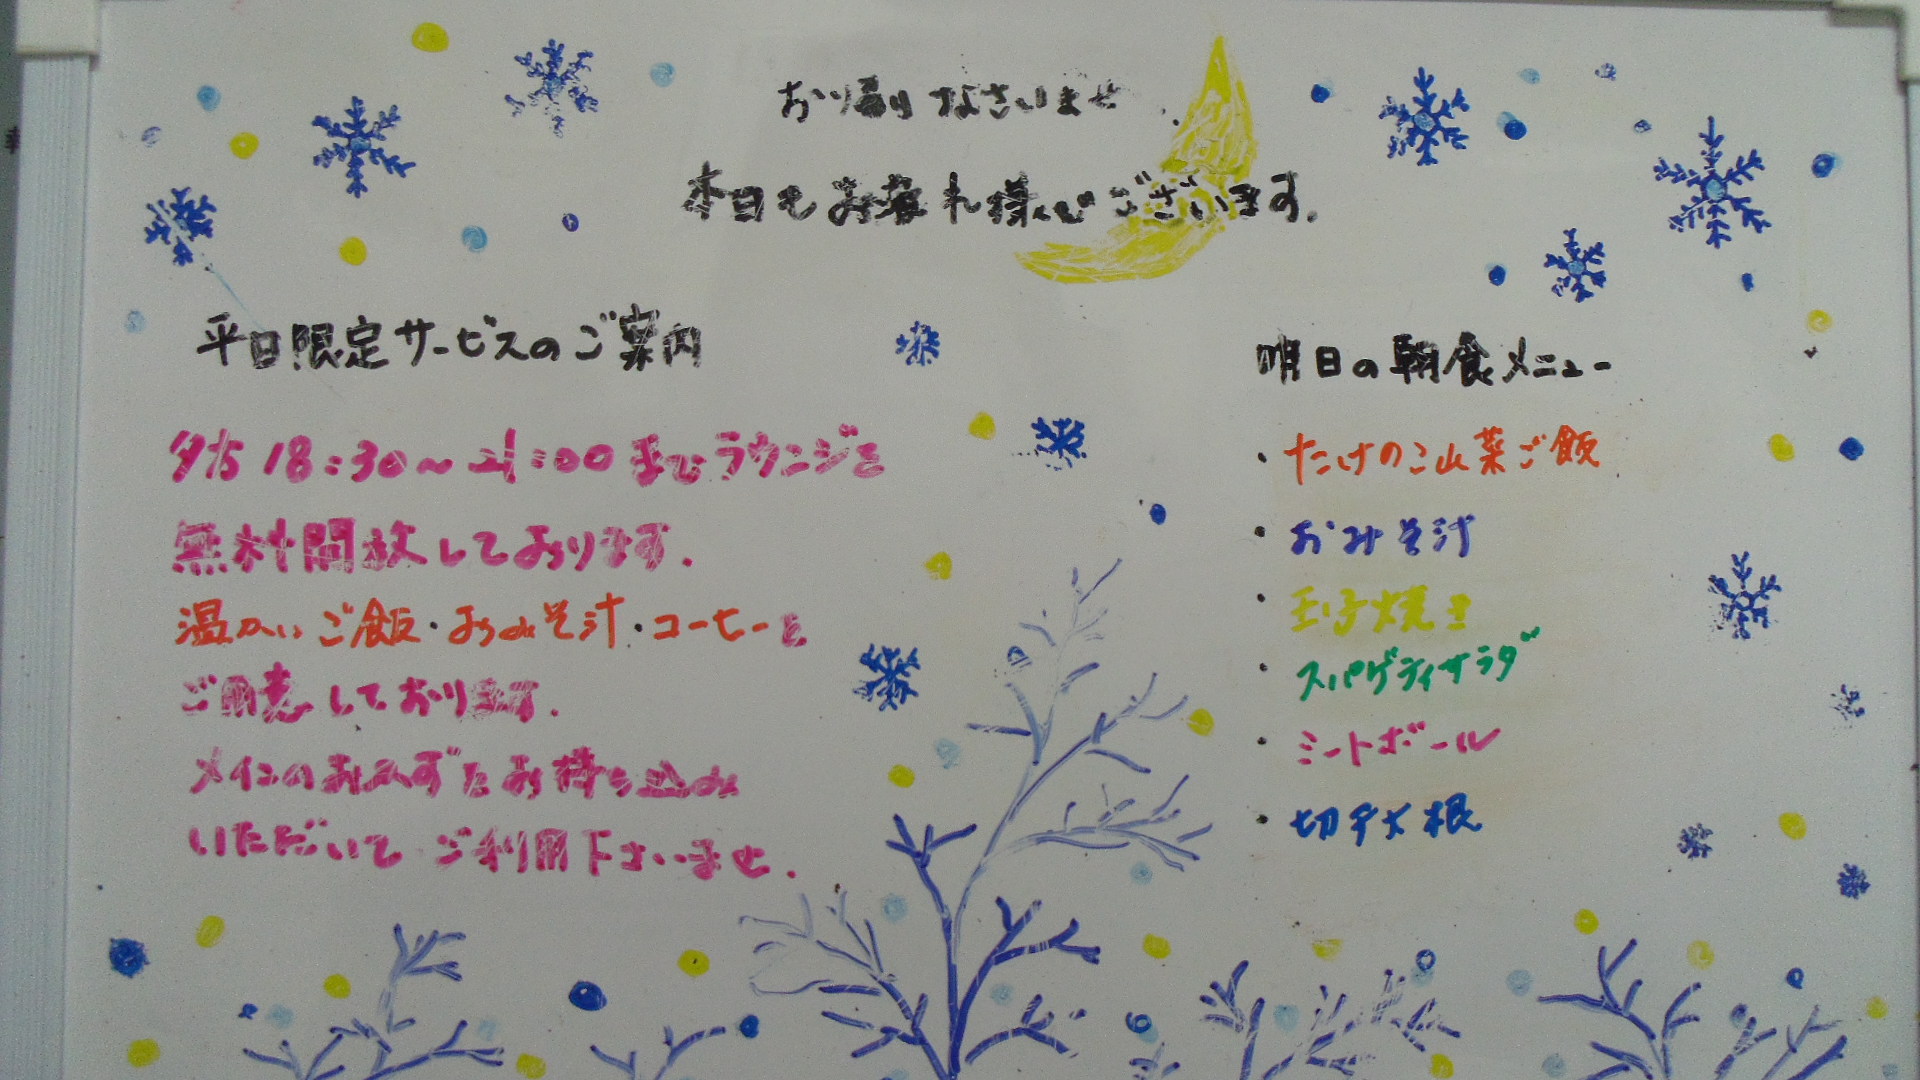 お帰りなさいませ
本日もお疲れ様でございます.
平日限定サービスのご案内
夕方 18:30～21:00 までラウンジを
無料開放しております.
温かいご飯・おみそ汁・コーヒーを
ご用意しております.
メインのおかずをお持ち込み
いただいて ご利用下さいませ.
明日の朝食メニュー
・たけのこ山菜ご飯
・おみそ汁
・玉子焼き
・スパゲティサラダ
・ミートボール
・切干大根